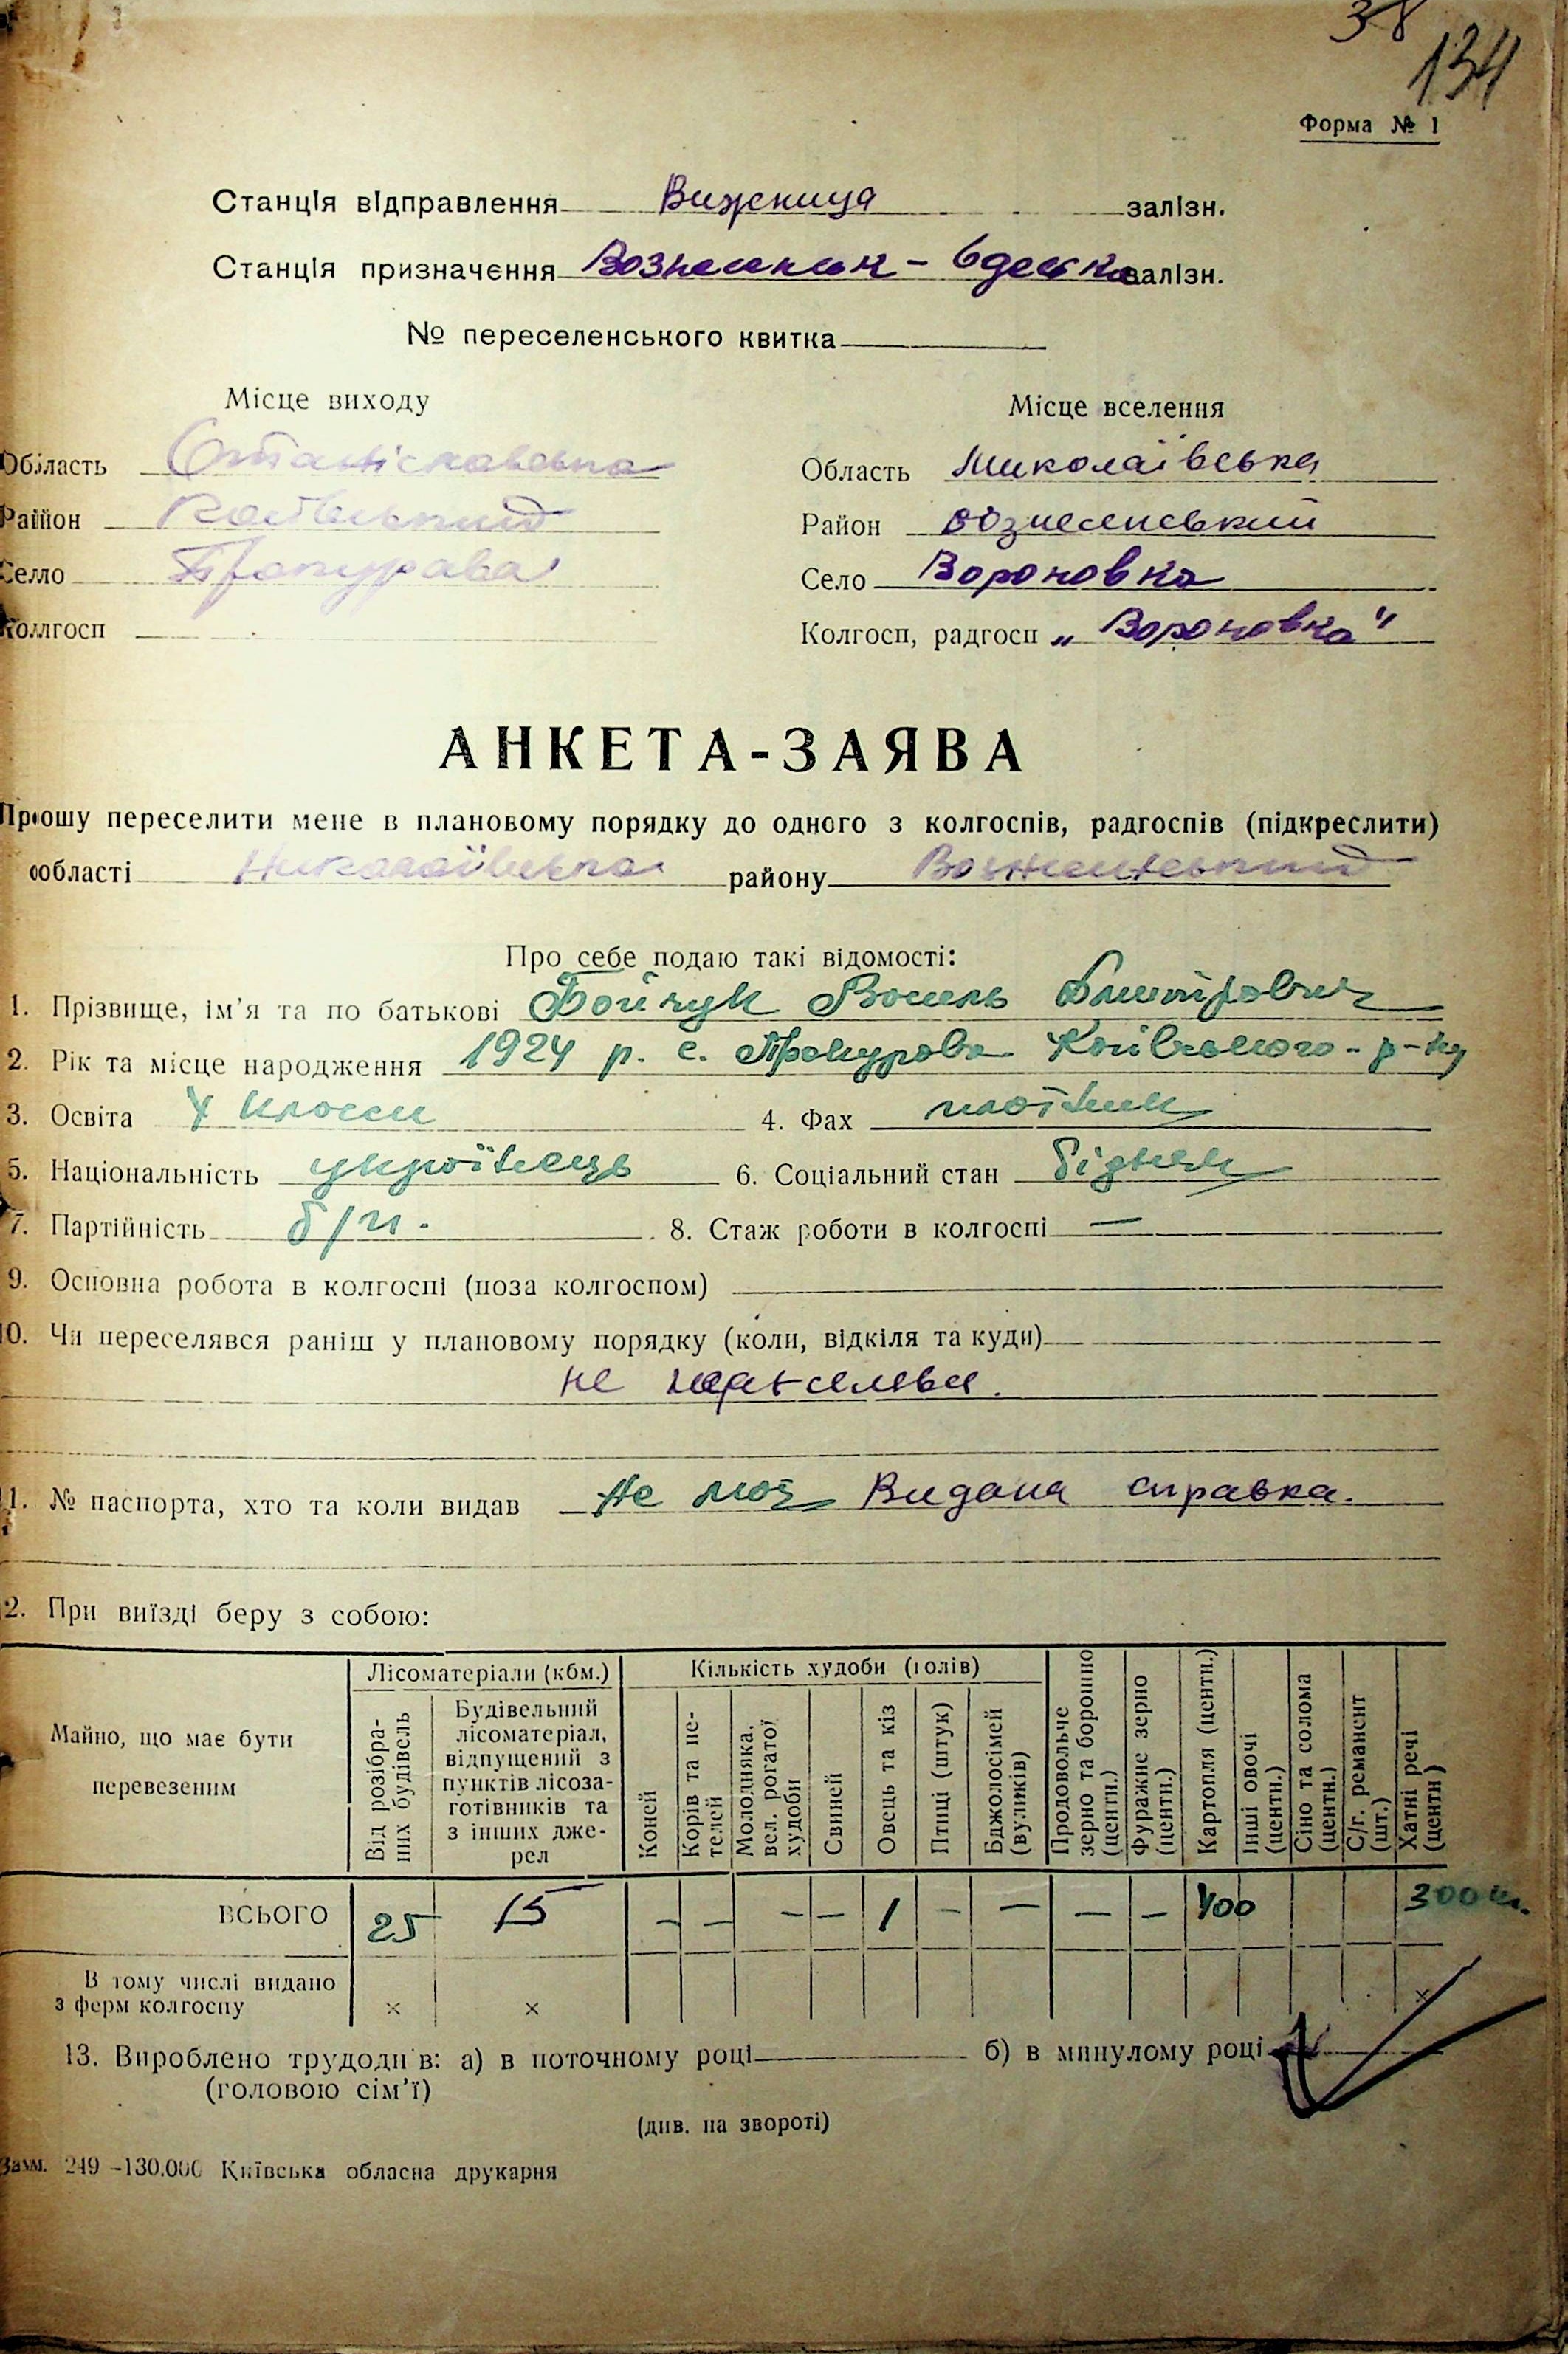 38
134
Форма № 1
Станція відправлення Вижница залізн.
Станція призначення Вознесенськ - Одеська залізн.
№ переселенського квитка
Місце виходу Місце вселення
Область Станіславська Область Миколаївська
Район Косівський Район Вознесенський
Село Прокурава Село Вороновка
Колгосп Колгосп, радгосп „Вороновка"
АНКЕТА-ЗАЯВА
Прошу переселити мене в плановому порядку до одного з колгоспів, радгоспів (підкреслити)
області Миколаївська району Вознесенський
Про себе подаю такі відомості:
1. Прізвище, ім'я та по батькові Бойчук Василь Дмитрович
2. Рік та місце народження 1924 р. с. Прокурава Косівського р-ну
3. Освіта 4 класи 4. Фах плотник
5. Національність українець 6. Соціальний стан бідняк
7. Партійність б/п. 8. Стаж роботи в колгоспі —
9. Основна робота в колгоспі (поза колгоспом)
10. Чи переселявся раніш у плановому порядку (коли, відкіля та куди)
не
11. № паспорта, хто та коли видав не має Видана справка.
2. При виїзді беру з собою:
Майно, що має бути перевезеним
Лісоматеріали (кбм.)
Від розібраних будівель
Будівельний лісоматеріал, відпущений з пунктів лісозаготівників та з інших джерел
Кількість худоби (голів)
Коней
Корів та нетелей
Молодняка, вел. рогатої худоби
Свиней
Овець та кіз
Птиці (штук)
Бджолосімей (вуликів)
Продовольче зерно та борошно (центн.)
Фуражне зерно (центн.)
Картопля (центн.)
Інші овочі (центн.)
Сіно та солома (центн.)
С/г. реманент (шт.)
Хатні речі (центн)
ВСЬОГО 25 15 — — — — 1 — — — — 400 300 кг.
В тому числі видано з ферм колгоспу × × ×
13. Вироблено трудоднів: а) в поточному році б) в минулому році
(головою сім'ї)
(див. на звороті)
Зам. 249 –130.000 Київська обласна друкарня